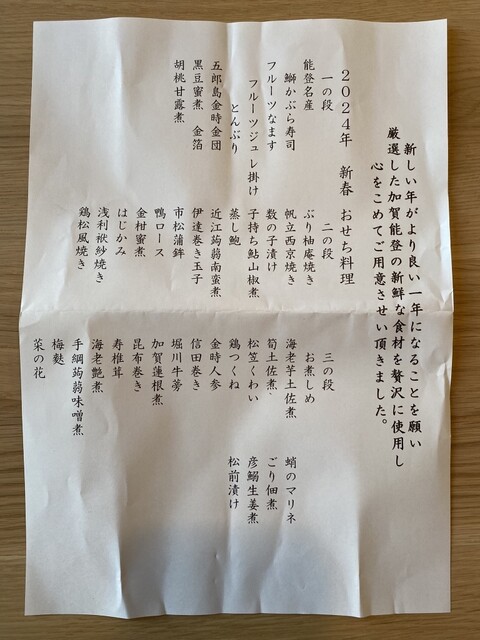 新しい年がより良い一年になることを願い
厳選した加賀能登の新鮮な食材を贅沢に使用し
心をこめてご用意させい頂きました。
2024年 新春 おせち料理
一の段
能登名産
鰤かぶら寿司
フルーツなます
フルーツジュレ掛け
とんぶり
五郎島金時金団
黒豆蜜煮 金箔
胡桃甘露煮
二の段
ぶり柚庵焼き
帆立西京焼き
数の子漬け
子持ち鮎山椒煮
蒸し鮑
近江蒟蒻南蛮煮
伊達巻き玉子
市松蒲鉾
鴨ロース
金柑蜜煮
はじかみ
浅利袱紗焼き
鶏松風焼き
三の段
お煮しめ
海老芋土佐煮
筍土佐煮
松笠くわい
鶏つくね
金時人参
信田巻き
堀川牛蒡
加賀蓮根煮
昆布巻き
寿椎茸
海老艶煮
手綱蒟蒻味噌煮
梅麩
菜の花
蛸のマリネ
ごり佃煮
彦鰯生姜煮
松前漬け